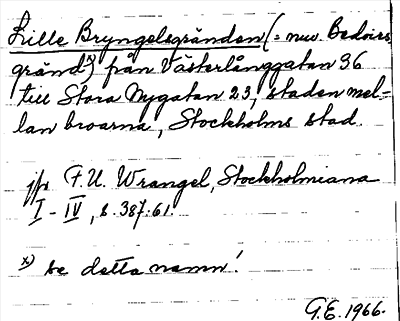 Lille Bryngelsgränden (= nuv. Bedoirs
gränd x) från Västerlånggatan 36
till Stora Nygatan 23, staden mel-
lan broarna, Stockholms stad.
jfr F.U. Wrangel, Stockholmiana
I - IV, s. 387:61.
x) se detta namn!
G.E. 1966.